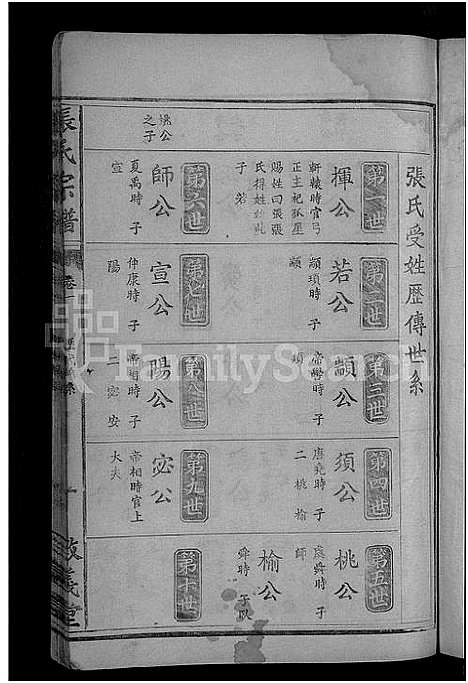 張氏受姓歷傳世系
第一世
揮公
軒轅時官弓
正主祀弧星
賜姓曰張張
氏得姓始此
子若
第二世
若公
顓頊時 子
顓
第三世
顓公
帝嚳時 子
須
第四世
須公
唐堯時 子
二 桃 榆
第五世
桃公
虞舜時 子
師
榆公
舜時
第十世
姚公
之子
第六世
師公
夏禹時 子
宣
第七世
宣公
仲康時 子
陽
第八世
陽公
帝相時 子
二 宓 安
第九世
宓公
帝相時官上
大夫
張氏宗譜
卷一
一
敦義堂
FamilySearch